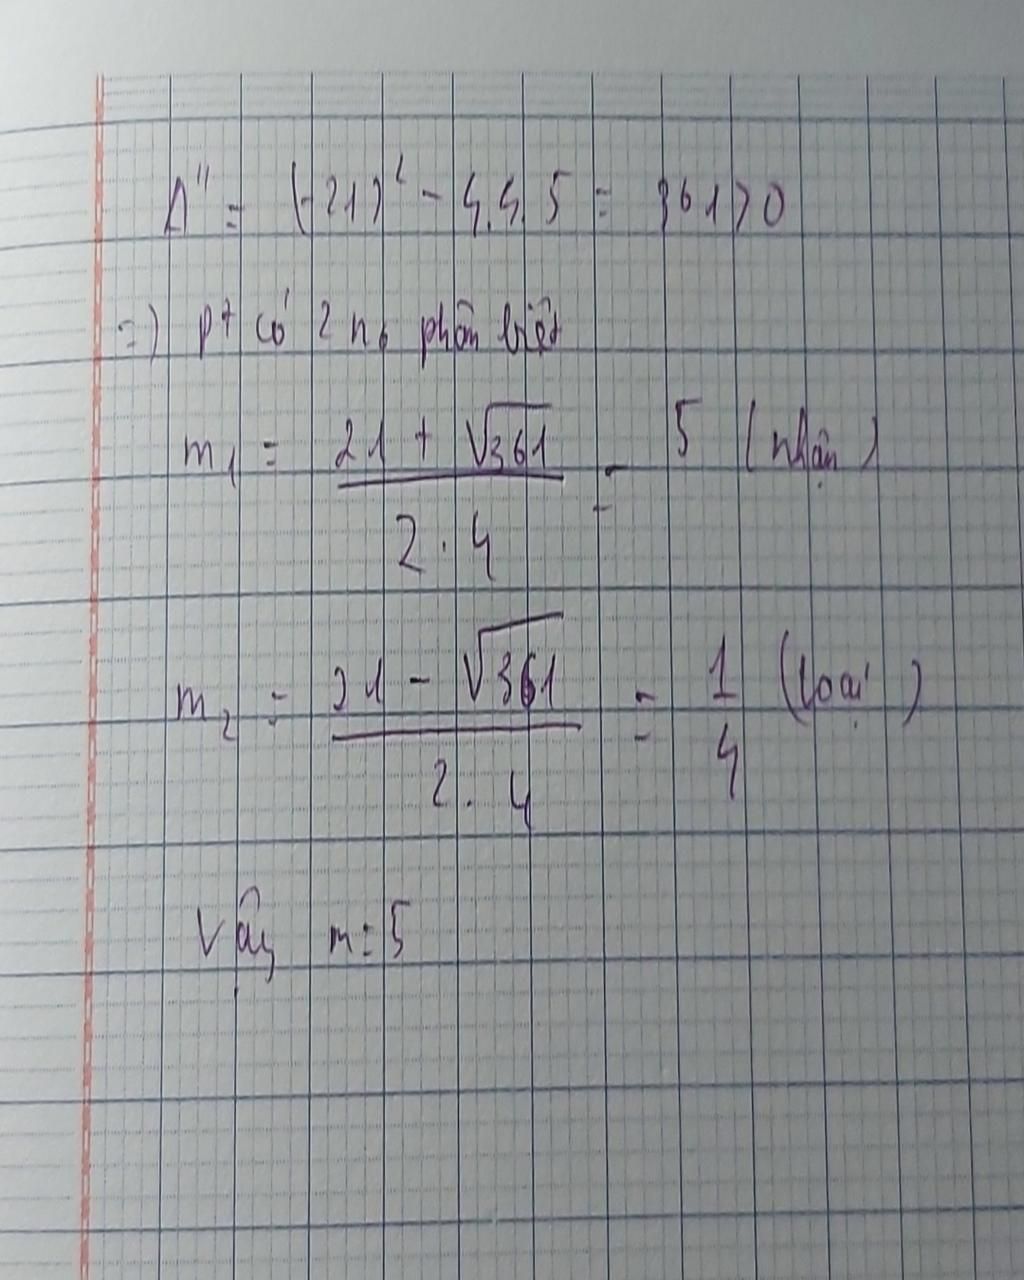 Δ'' = (-21)² - 4.4.5 = 361 > 0
=) pt có 2 n₀ phân biệt
m₁ = (21 + √361) / (2 . 4) = 5 (nhận)
m₂ = (21 - √361) / (2 . 4) = 1/4 (loại)
Vậy m = 5